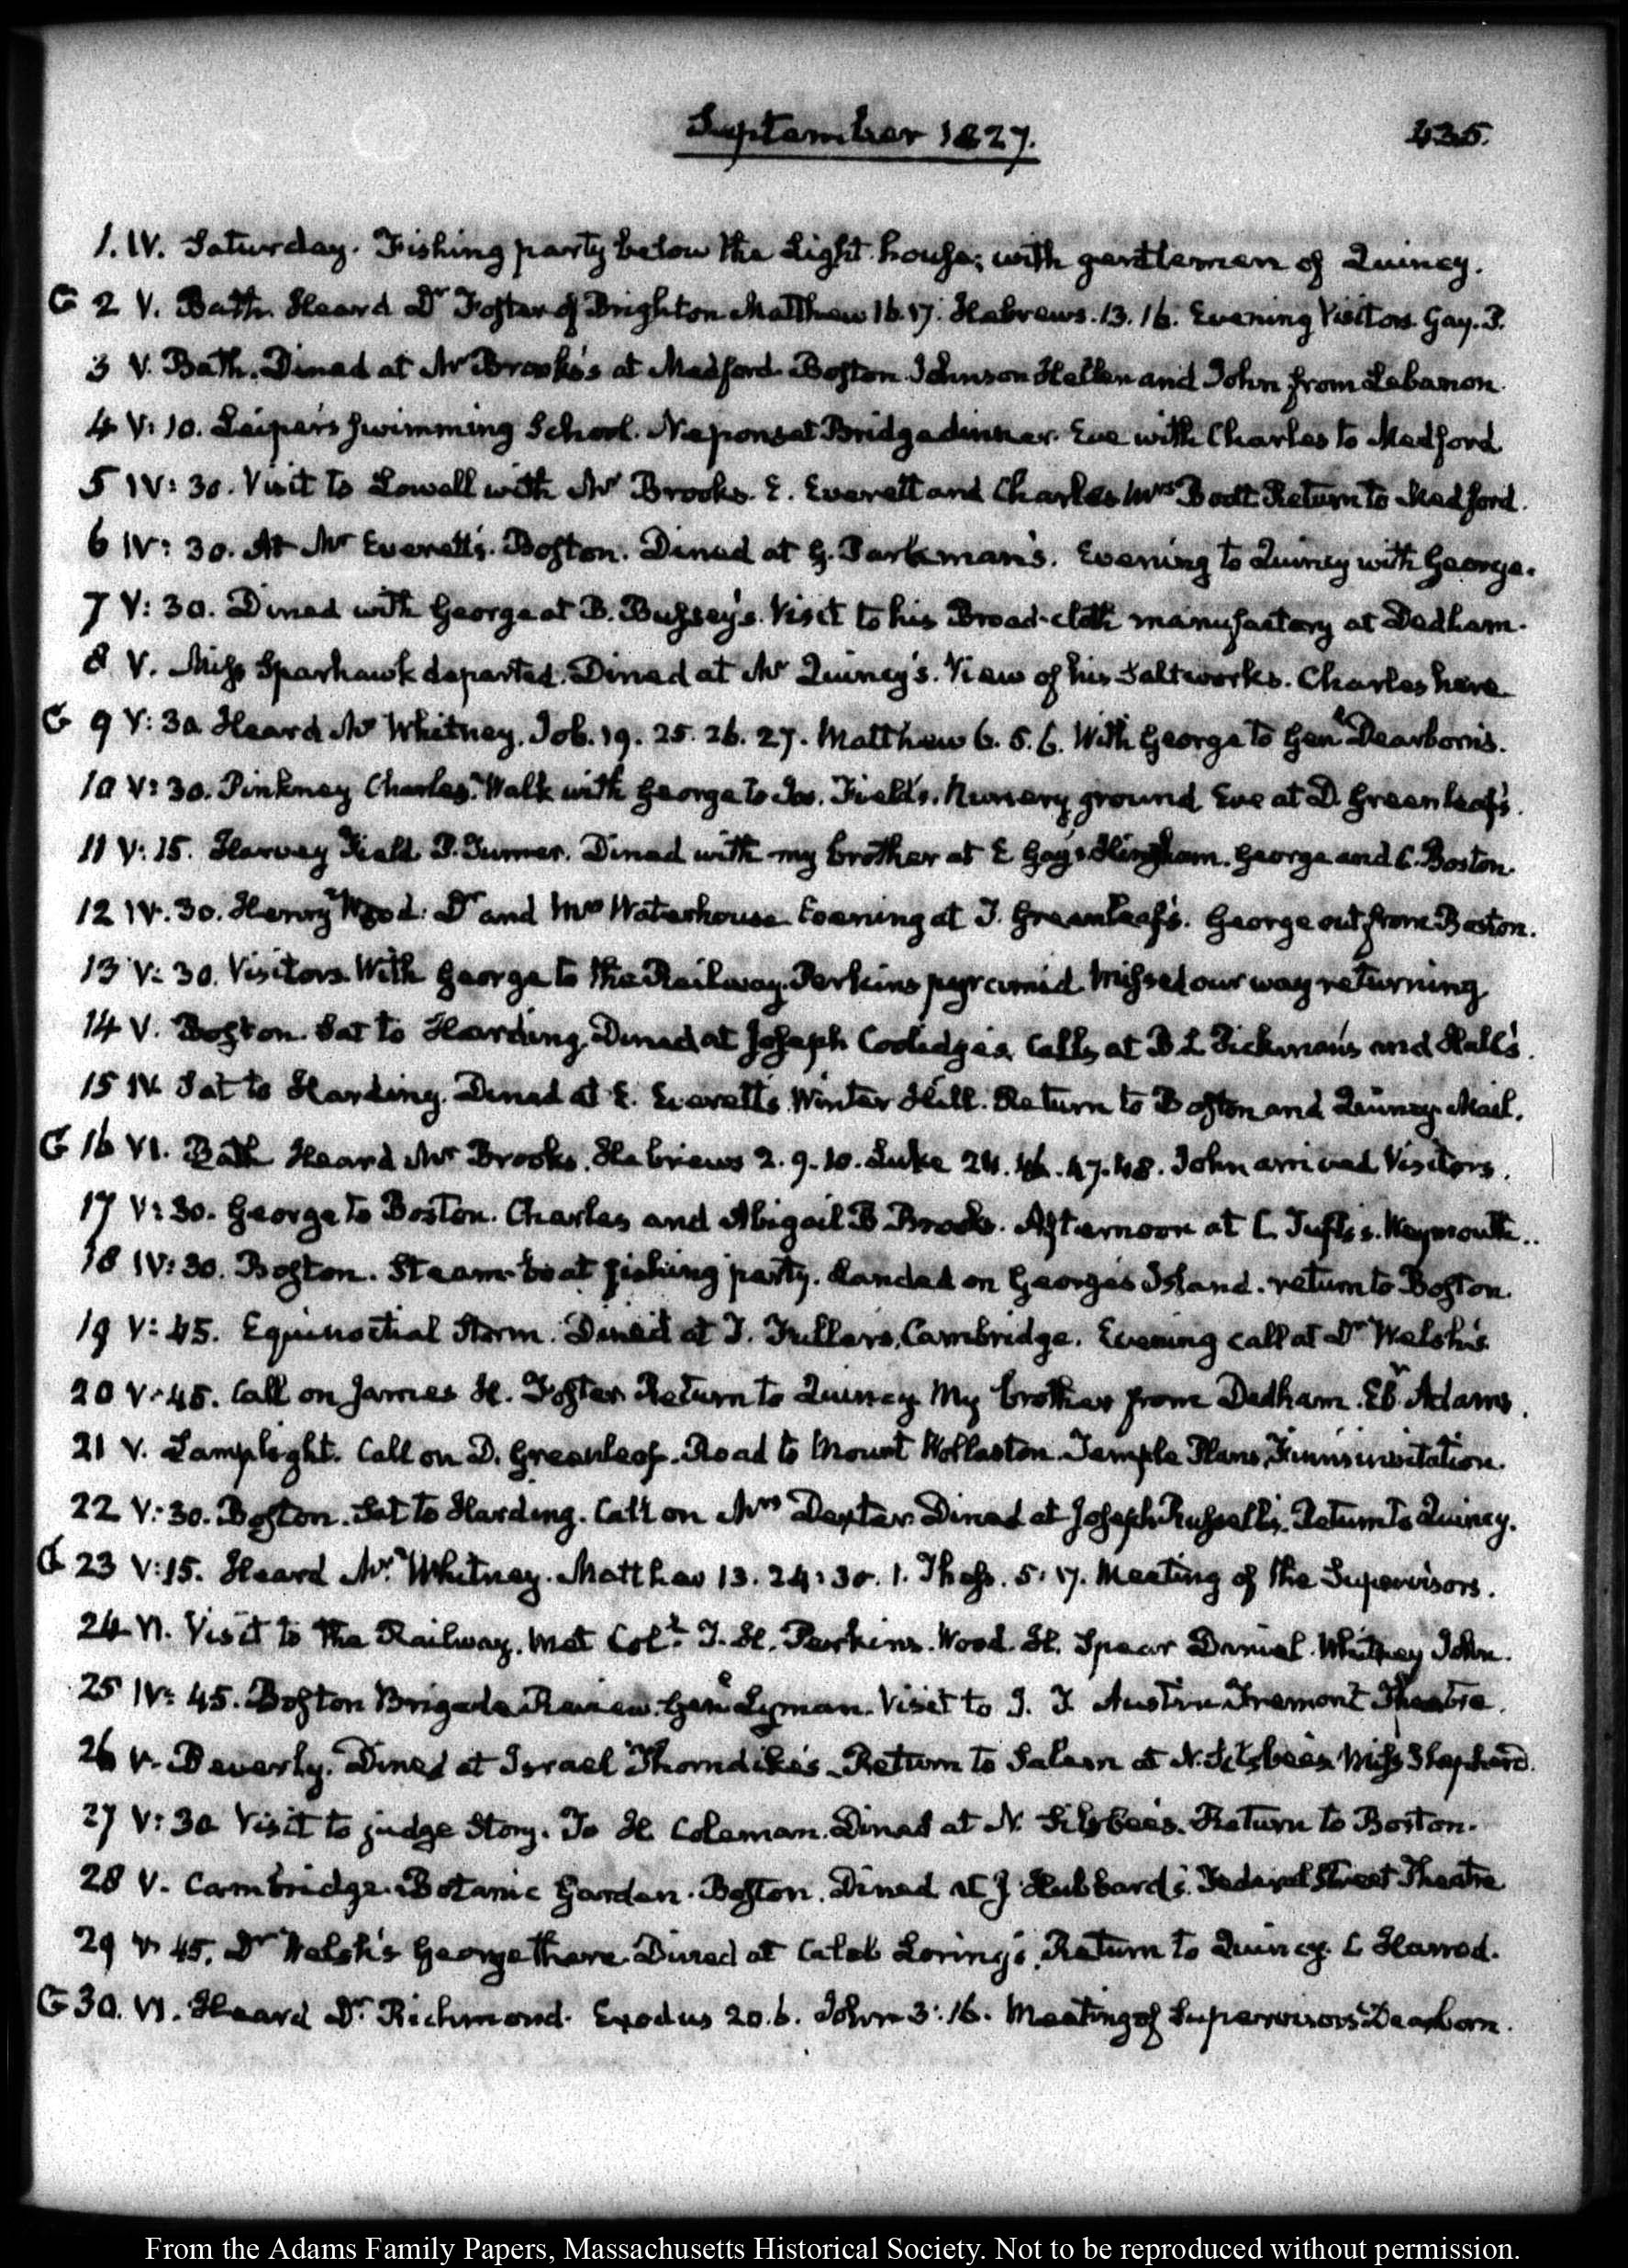 September 1827.
435.
1. IV. Saturday. Fishing party below the Light house; with gentlemen of Quincy.
G 2 V. Bath. Heard Dr Foster of Brighton Matthew 16.17. Hebrews. 13.16. Evening Visitors. Gay. P.
3 V. Bath. Dined at Mr Brooks's at Medford. Boston Johnson Hellen and John from Lebanon.
4 V: 10. Leiper's swimming School. Neponset Bridge dinner. Eve with Charles to Medford
5 IV: 30. Visit to Lowell with Mr Brooks. E. Everett and Charles Mrs Boott Return to Medford.
6 IV: 30. At Mr Everett's. Boston. Dined at G. Parkman's. Evening to Quincy with George.
7 V: 30. Dined with George at B. Bussey's. Visit to his Broad-cloth manufactory at Dedham.
8 V. Miss Sparhawk departed. Dined at Mr Quincy's. View of his Saltworks. Charles here
G 9 V: 30 Heard Mr Whitney. Job. 19. 25. 26. 27. Matthew 6. 5. 6. With George to Genl Dearborn's.
10 V: 30. Pinkney Charles. Walk with George to Jos. Field's. Nursery ground Eve at D. Greenleaf's.
11 V: 15. Harvey Field P. Turner. Dined with my brother at E Gay's Hingham. George and C. Boston.
12 IV. 30. Henry Wood. Dr and Mrs Waterhouse Evening at T. Greenleaf's. George out from Boston.
13 V: 30. Visitors. With George to the Railway. Perkins pyramid. Missed our way returning
14 V. Boston. Sat to Harding. Dined at Joseph Coolidge's. Calls at B L Pickman's and Hall's.
15 IV. Sat to Harding. Dined at E. Everett's Winter Hill. Return to Boston and Quincy. Mail.
G 16 VI. Bath Heard Mr Brooks. Hebrews 2. 9. 10. Luke 24. 46. 47. 48. John arrived Visitors.
17 V: 30. George to Boston. Charles and Abigail B Brooks. Afternoon at C. Tufts's. Weymouth..
18 IV: 30. Boston. Steam-boat fishing party. Landed on George's Island. return to Boston.
19 V: 45. Equinoctial Storm. Dined at T. Fullers, Cambridge. Evening call at Dr Welsh's
20 V: 45. Call on James H. Foster. Return to Quincy My brother from Dedham. Ebr Adams.
21 V. Lamplight. Call on D. Greenleaf. Road to Mount Wollaston. Temple Plans invitation.
22 V: 30. Boston. Sat to Harding. Call on Mrs Dexter. Dined at Joseph Russell's. Return to Quincy.
G 23 V: 15. Heard Mr Whitney. Matthew 13. 24: 30. 1. Thess. 5: 17. Meeting of the Supervisors.
24 VI. Visit to the Railway. Met Coll T. H. Perkins. Wood. H. Spear Daniel. Whitney John.
25 IV: 45. Boston Brigade Review. Genl Lyman. Visit to J. T. Austin Tremont Theatre.
26 V. Beverly. Dined at Israel Thorndike's. Return to Salem at N. Silsbee's Miss Shephard.
27 V: 30 Visit to judge Story. To H. Coleman. Dined at N. Silsbee's. Return to Boston.
28 V. Cambridge. Botanic Garden. Boston. Dined at J Hubbard's. Federal Street Theatre
29 V: 45. Dr Welsh's George there. Dined at Caleb Loring's. Return to Quincy. C Harrod.
G 30. VI. Heard Dr. Richmond. Exodus 20. 6. John 3: 16. Meeting of Supervisors Dearborn.
From the Adams Family Papers, Massachusetts Historical Society. Not to be reproduced without permission.